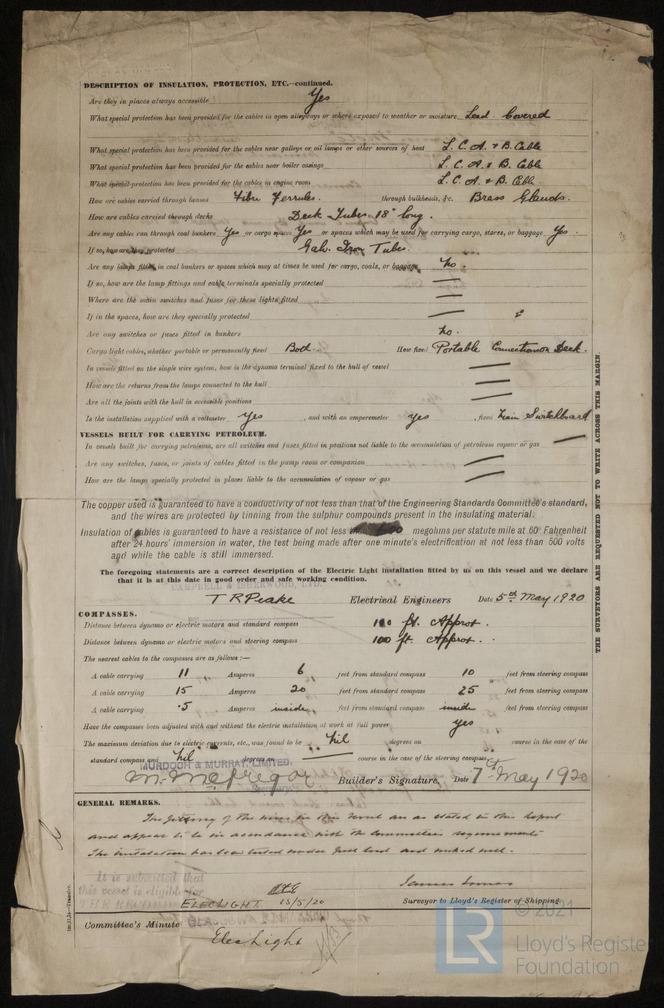 DESCRIPTION OF INSULATION, PROTECTION, ETC.—continued.
Are they in places always accessible Yes
What special protection has been provided for the cables in open alleyways or where exposed to weather or moisture Lead Covered
What special protection has been provided for the cables near galleys or oil lamps or other sources of heat L.C.A. & B. Cable
What special protection has been provided for the cables near boiler casings L.C.A. & B. Cable
What special protection has been provided for the cables in engine room L.C.A. & B. Cble
How are cables carried through beams Fibre Ferrules. through bulkheads, &c. Brass Glands.
How are cables carried through decks Deck Tubes 18" long.
Are any cables run through coal bunkers Yes or cargo spaces Yes or spaces which may be used for carrying cargo, stores, or baggage Yes.
If so, how are they protected Galv. Iron Tube.
Are any lamps fitted in coal bunkers or spaces which may at times be used for cargo, coals, or baggage No.
If so, how are the lamp fittings and cable terminals specially protected
Where are the main switches and fuses for these lights fitted
If in the spaces, how are they specially protected
Are any switches or fuses fitted in bunkers No.
Cargo light cables, whether portable or permanently fixed Both How fixed Portable Connection on Deck.
In vessels fitted on the single wire system, how is the dynamo terminal fixed to the hull of vessel
How are the returns from the lamps connected to the hull
Are all the joints with the hull in accessible positions
Is the installation supplied with a voltmeter Yes , and with an amperemeter Yes , fixed Main Switchboard
VESSELS BUILT FOR CARRYING PETROLEUM.
In vessels built for carrying petroleum, are all switches and fuses fitted in positions not liable to the accumulation of petroleum vapour or gas
Are any switches, fuses, or joints of cables fitted in the pump room or companion
How are the lamps specially protected in places liable to the accumulation of vapour or gas
The copper used is guaranteed to have a conductivity of not less than that of the Engineering Standards Committee's standard,
and the wires are protected by tinning from the sulphur compounds present in the insulating material.
Insulation of cables is guaranteed to have a resistance of not less than megohms per statute mile at 60° Fahrenheit
after 24 hours' immersion in water, the test being made after one minute's electrification at not less than 500 volts
and while the cable is still immersed.
The foregoing statements are a correct description of the Electric Light installation fitted by us on this vessel and we declare
that it is at this date in good order and safe working condition.
CAMPBELL & ISHERWOOD, LTD.
T R Peake Electrical Engineers Date 5th May 1920
COMPASSES.
Distance between dynamo or electric motors and standard compass 110 ft. Approx.
Distance between dynamo or electric motors and steering compass 100 ft. Approx.
The nearest cables to the compasses are as follows:—
A cable carrying 11 Amperes 6 feet from standard compass 10 feet from steering compass
A cable carrying 15 Amperes 20 feet from standard compass 25 feet from steering compass
A cable carrying .5 Amperes inside feet from standard compass inside feet from steering compass
Have the compasses been adjusted with and without the electric installation at work at full power Yes
The maximum deviation due to electric currents, etc., was found to be Nil degrees on course in the case of the
standard compass and Nil degrees on course in the case of the steering compass.
MURDOCH & MURRAY, LIMITED.
M. McGregor Builder's Signature, Date 7th May 1920
GENERAL REMARKS.
The fitting of the wires in this vessel are as stated in this report
and appear to be in accordance with the Committee's requirements
The installation has been tested under full load and worked well.
It is submitted that
this vessel is eligible for
THE RECORD
ELEC. LIGHT 18/5/20
Surveyor to Lloyd's Register of Shipping
Committee's Minute
Elec Light
THE SURVEYORS ARE REQUESTED NOT TO WRITE ACROSS THIS MARGIN.
LR
© 2021
Lloyd's Register
Foundation